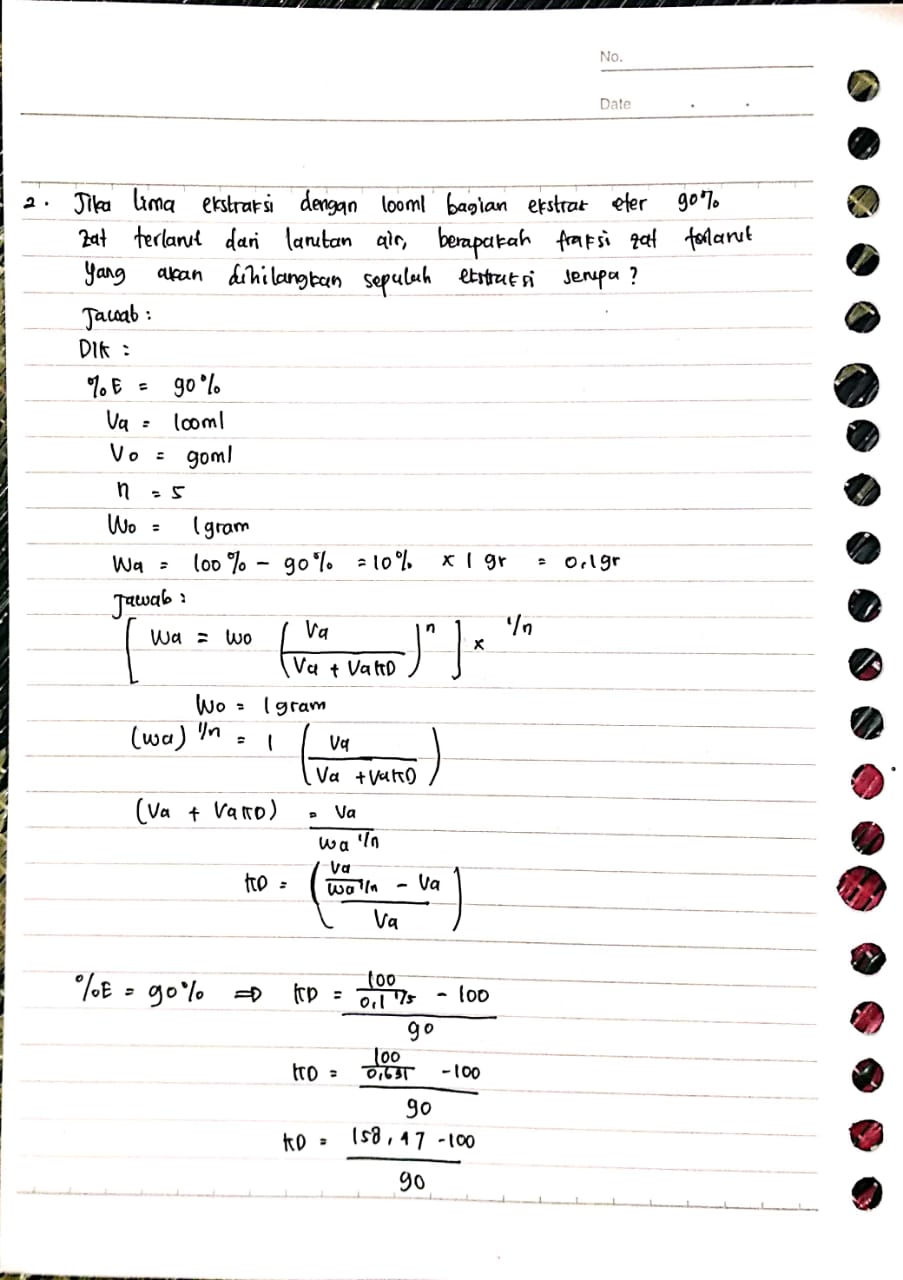 No.
Date . .
2. Jika lima ekstraksi dengan 100ml bagian ekstrak eter 90%
zat terlarut dari larutan air, berapakah fraksi zat terlarut
yang akan dihilangkan sepuluh ekstraksi serupa ?
Jawab :
Dik :
%E = 90%
Va = 100ml
Vo = 90ml
n = 5
Wo = 1 gram
Wa = 100% - 90% = 10% x 1 gr = 0,1gr
Jawab :
[ Wa = Wo ( Va / (Va + VaKD) )^n ] x 1/n
Wo = 1 gram
(wa)^1/n = 1 ( Va / (Va + VaKD) )
(Va + VaKD) = Va / wa^1/n
KD = ( (Va / wa^1/n - Va) / Va )
%E = 90% ⇒ KD = (100 / 0,1^1/5 - 100) / 90
KD = (100 / 0,631 - 100) / 90
KD = (158,47 - 100) / 90